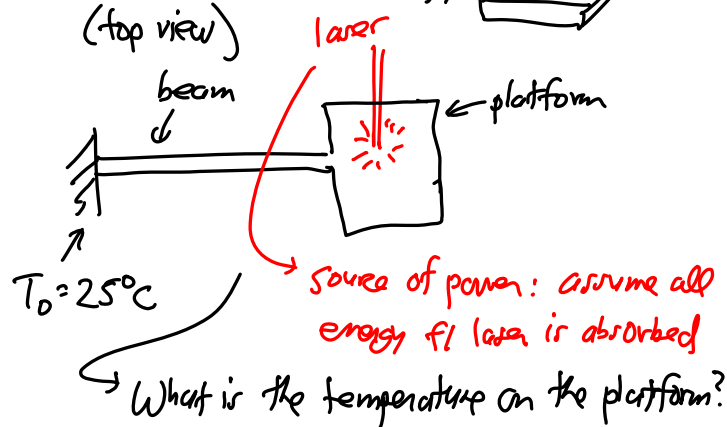 (top view)
laser
beam
platform
T₀=25°C
source of power: assume all
energy f/ laser is absorbed
What is the temperature on the platform?